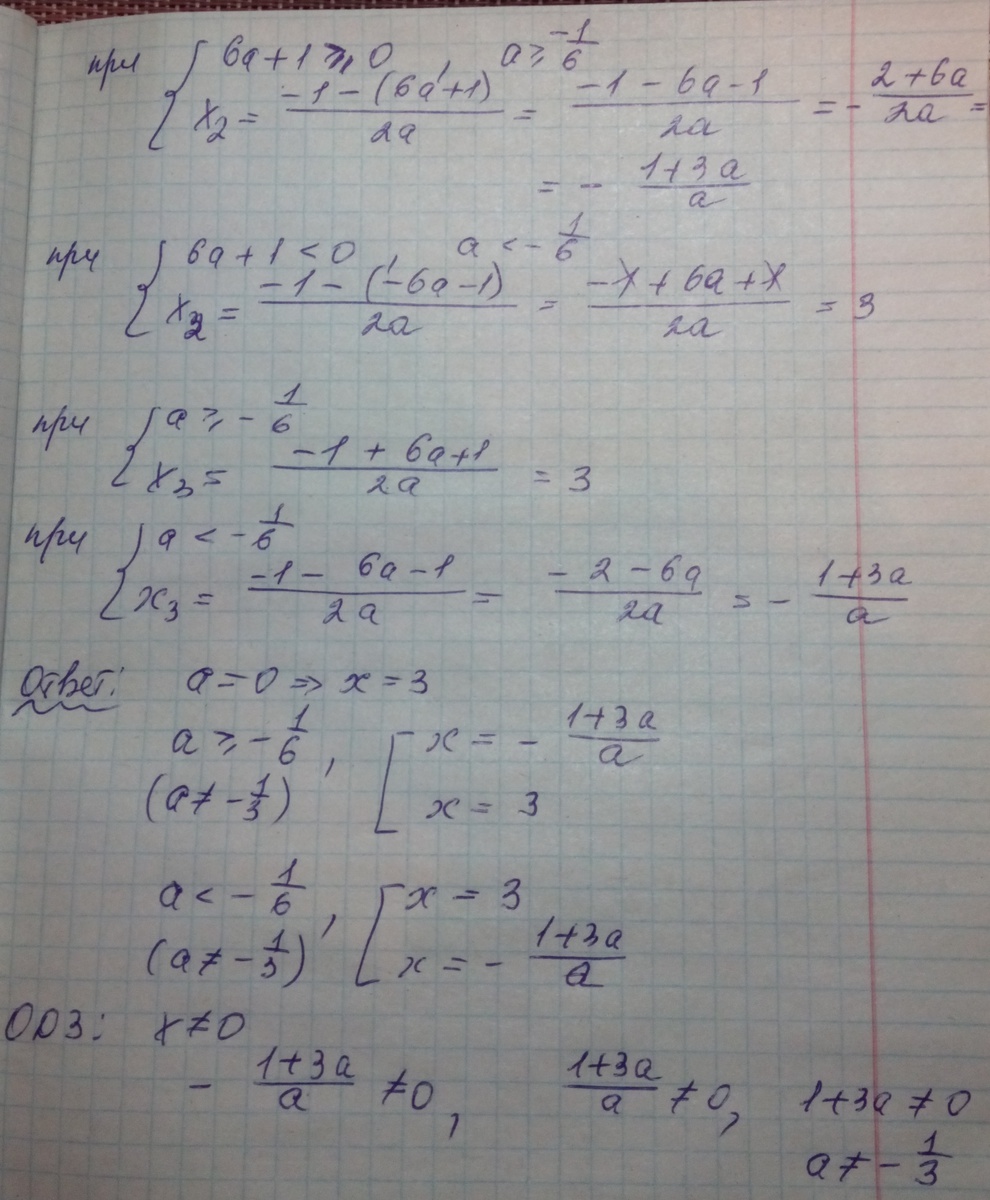 при { 6a+1 ≥ 0, a ≥ -1/6
x₂ = (-1-(6a+1))/2a = (-1-6a-1)/2a = - (2+6a)/2a =
= - (1+3a)/a
при { 6a+1 < 0, a < -1/6
x₂ = (-1-(-6a-1))/2a = (-1+6a+1)/2a = 3
при { a ≥ -1/6
x₃ = (-1+6a+1)/2a = 3
при { a < -1/6
x₃ = (-1-6a-1)/2a = (-2-6a)/2a = - (1+3a)/a
Ответ: a=0 => x=3
a ≥ -1/6, [ x = - (1+3a)/a
(a ≠ -1/3) x = 3
a < -1/6, [ x = 3
(a ≠ -1/3) x = - (1+3a)/a
ОДЗ: x≠0
- (1+3a)/a ≠0, (1+3a)/a ≠0, 1+3a ≠0
a ≠ -1/3